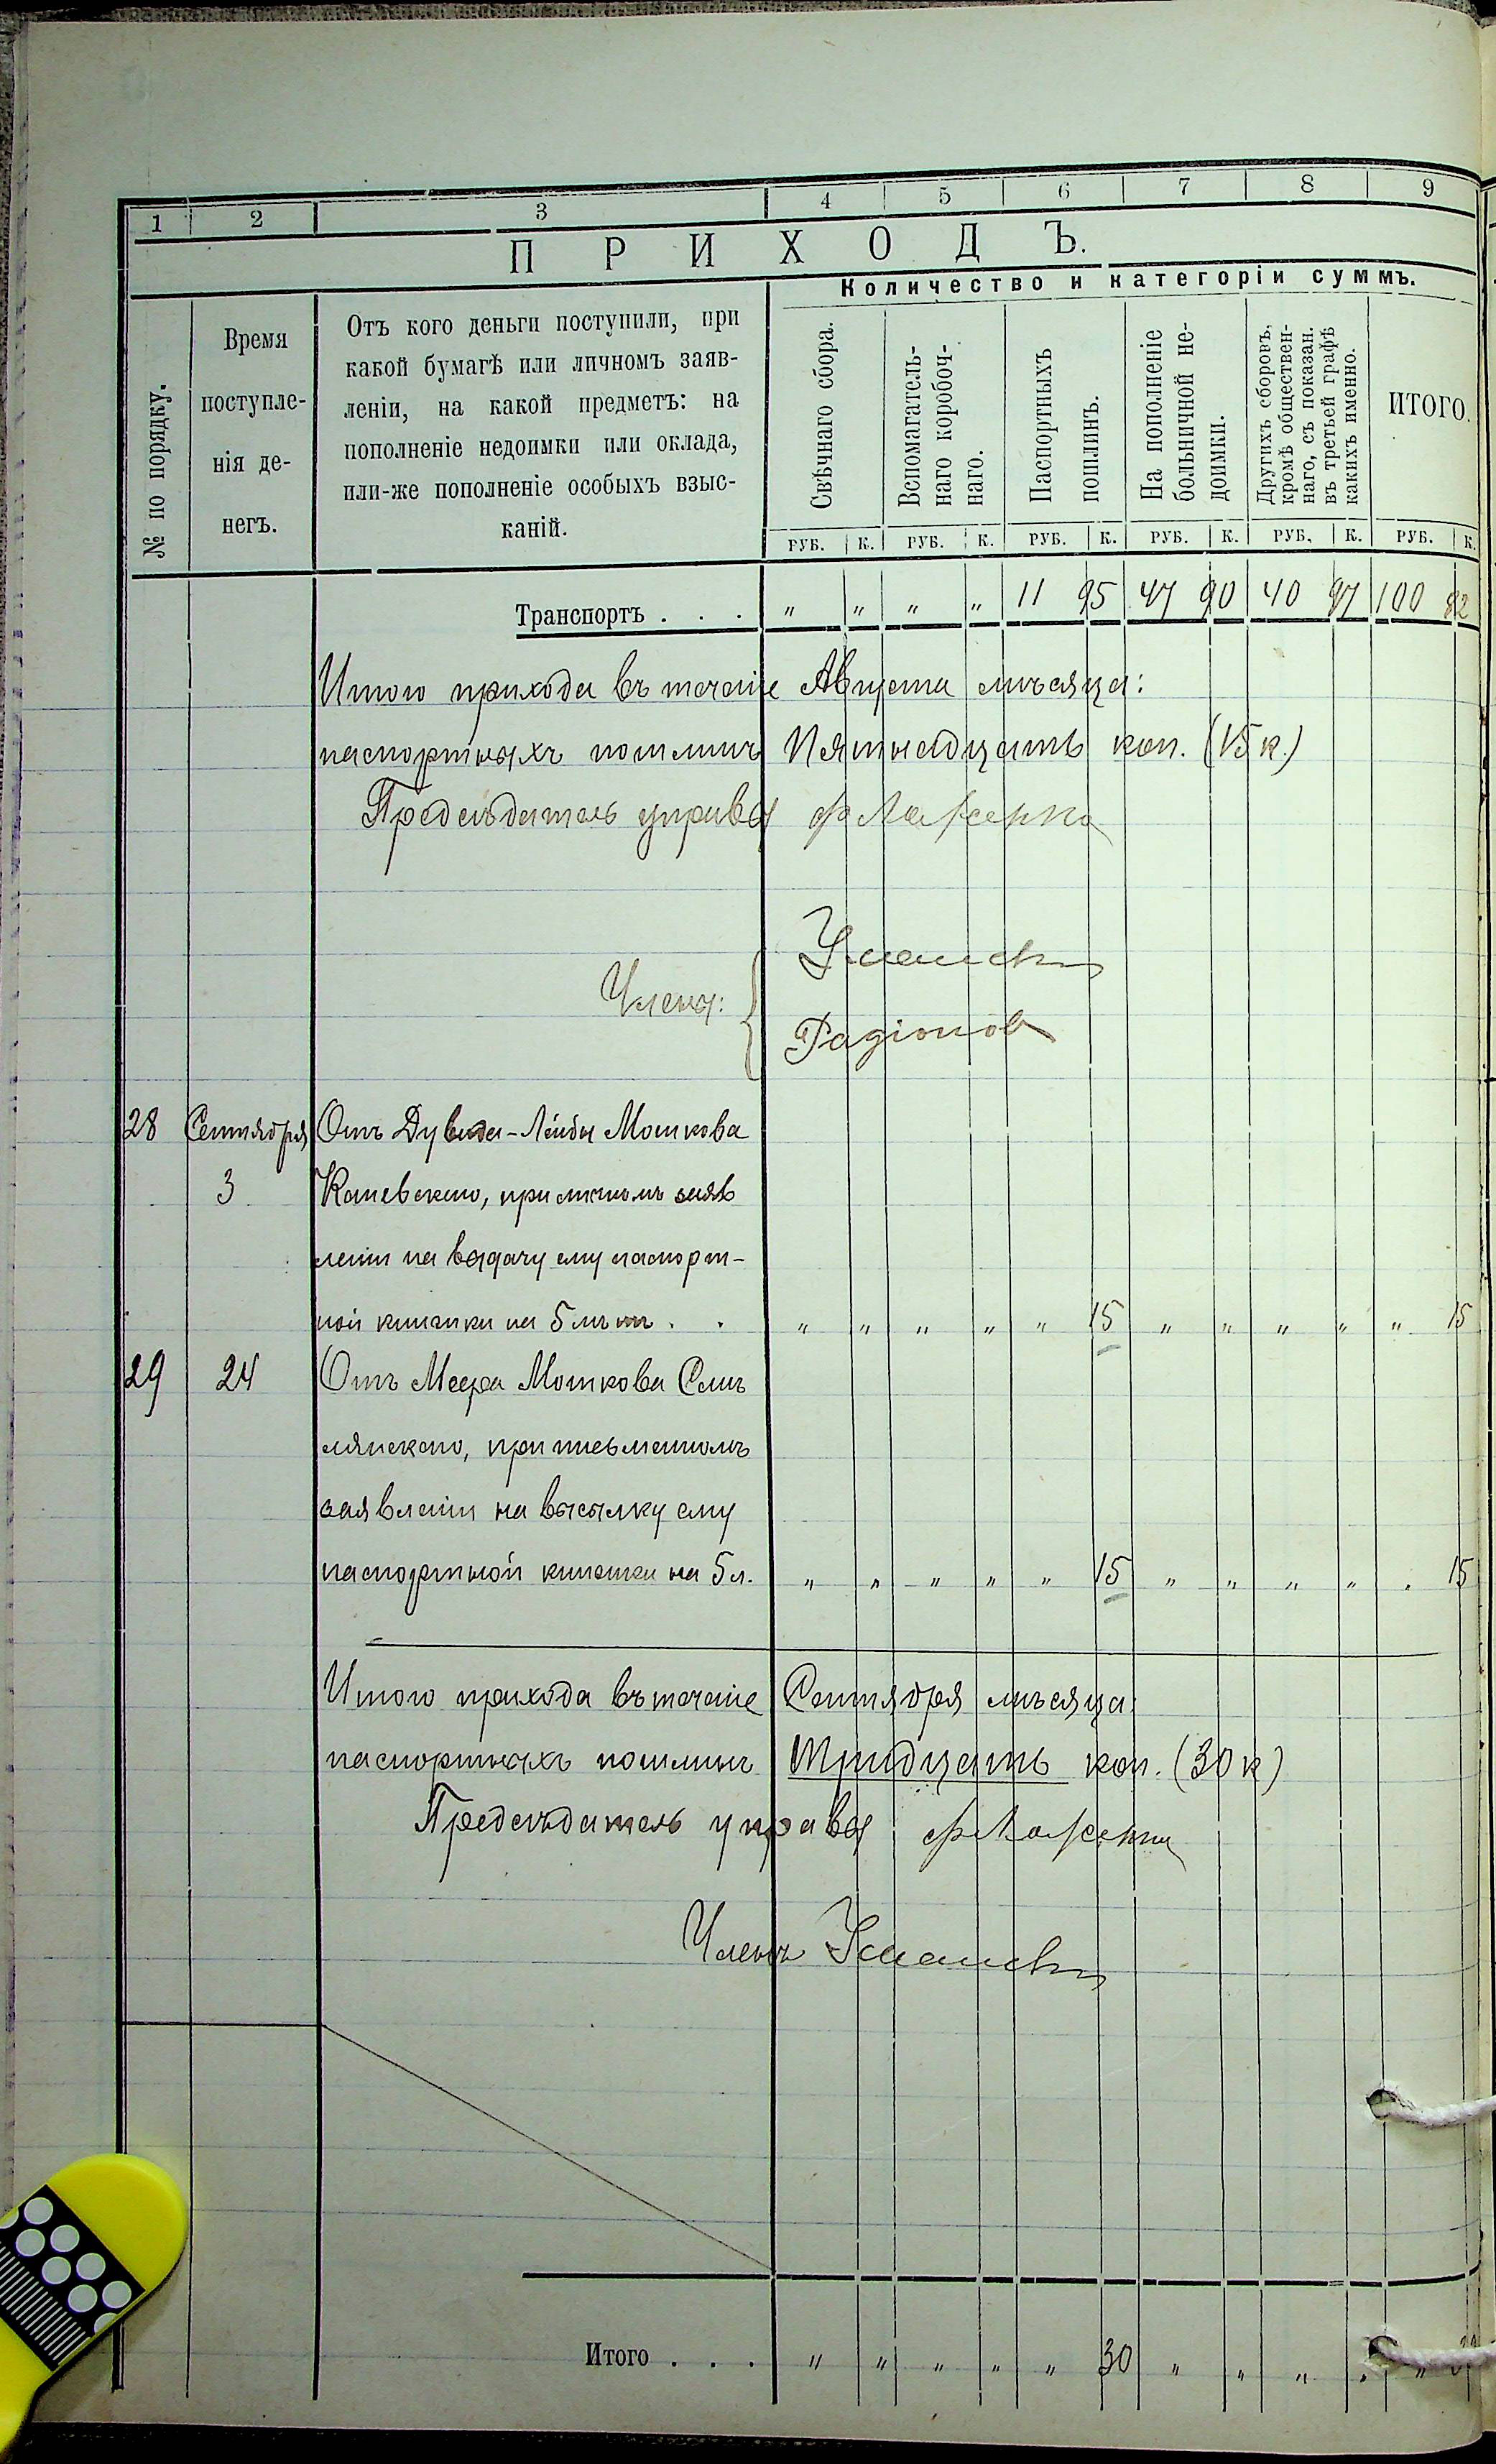 1 2 3 4 5 6 7 8 9
ПРИХОДЪ.
Количество и категоріи суммъ.
№ по порядку.
Время
поступле-
нія де-
негъ.
Отъ кого деньги поступили, при
какой бумагѣ или личномъ заяв-
леніи, на какой предметъ: на
пополненіе недоимки или оклада,
или-же пополненіе особыхъ взыс-
каній.
Свѣчнаго сбора.
Вспомагатель-
наго коробоч-
наго.
Паспортныхъ
пошлинъ.
На пополненіе
больничной не-
доимки.
Другихъ сборовъ,
кромѣ обществен-
наго, съ показан.
въ третьей графѣ
какихъ именно.
ИТОГО.
РУБ. К. РУБ. К. РУБ. К. РУБ. К. РУБ. К. РУБ. К.
Транспортъ . . . " " " " 11 95 47 90 40 97 100 82
Итого прихода въ теченіе Августа мѣсяца:
паспортныхъ пошлинъ Пятнадцать коп. (15 к.)
Предсѣдатель управы
Члены: Уманскій
Радіонов
28 Сентября Отъ Дувида-Лейбы Мошкова
3 Каневскаго, при личномъ заяв
леніи на выдачу ему паспорт-
ной книжки на 5 лѣтъ . . " " " " " 15 " " " " " 15
29 24 Отъ Меера Мошкова Смѣ
лянскаго, при письменномъ
заявленіи на высылку ему
паспортной книжки на 5 л. " " " " " 15 " " " " . 15
Итого прихода въ теченіе Сентября мѣсяца:
паспортныхъ пошлинъ Тридцать коп. (30 к)
Предсѣдатель управы
Членъ Уманскій
Итого . . . " " " " " 30 " " " " " 30